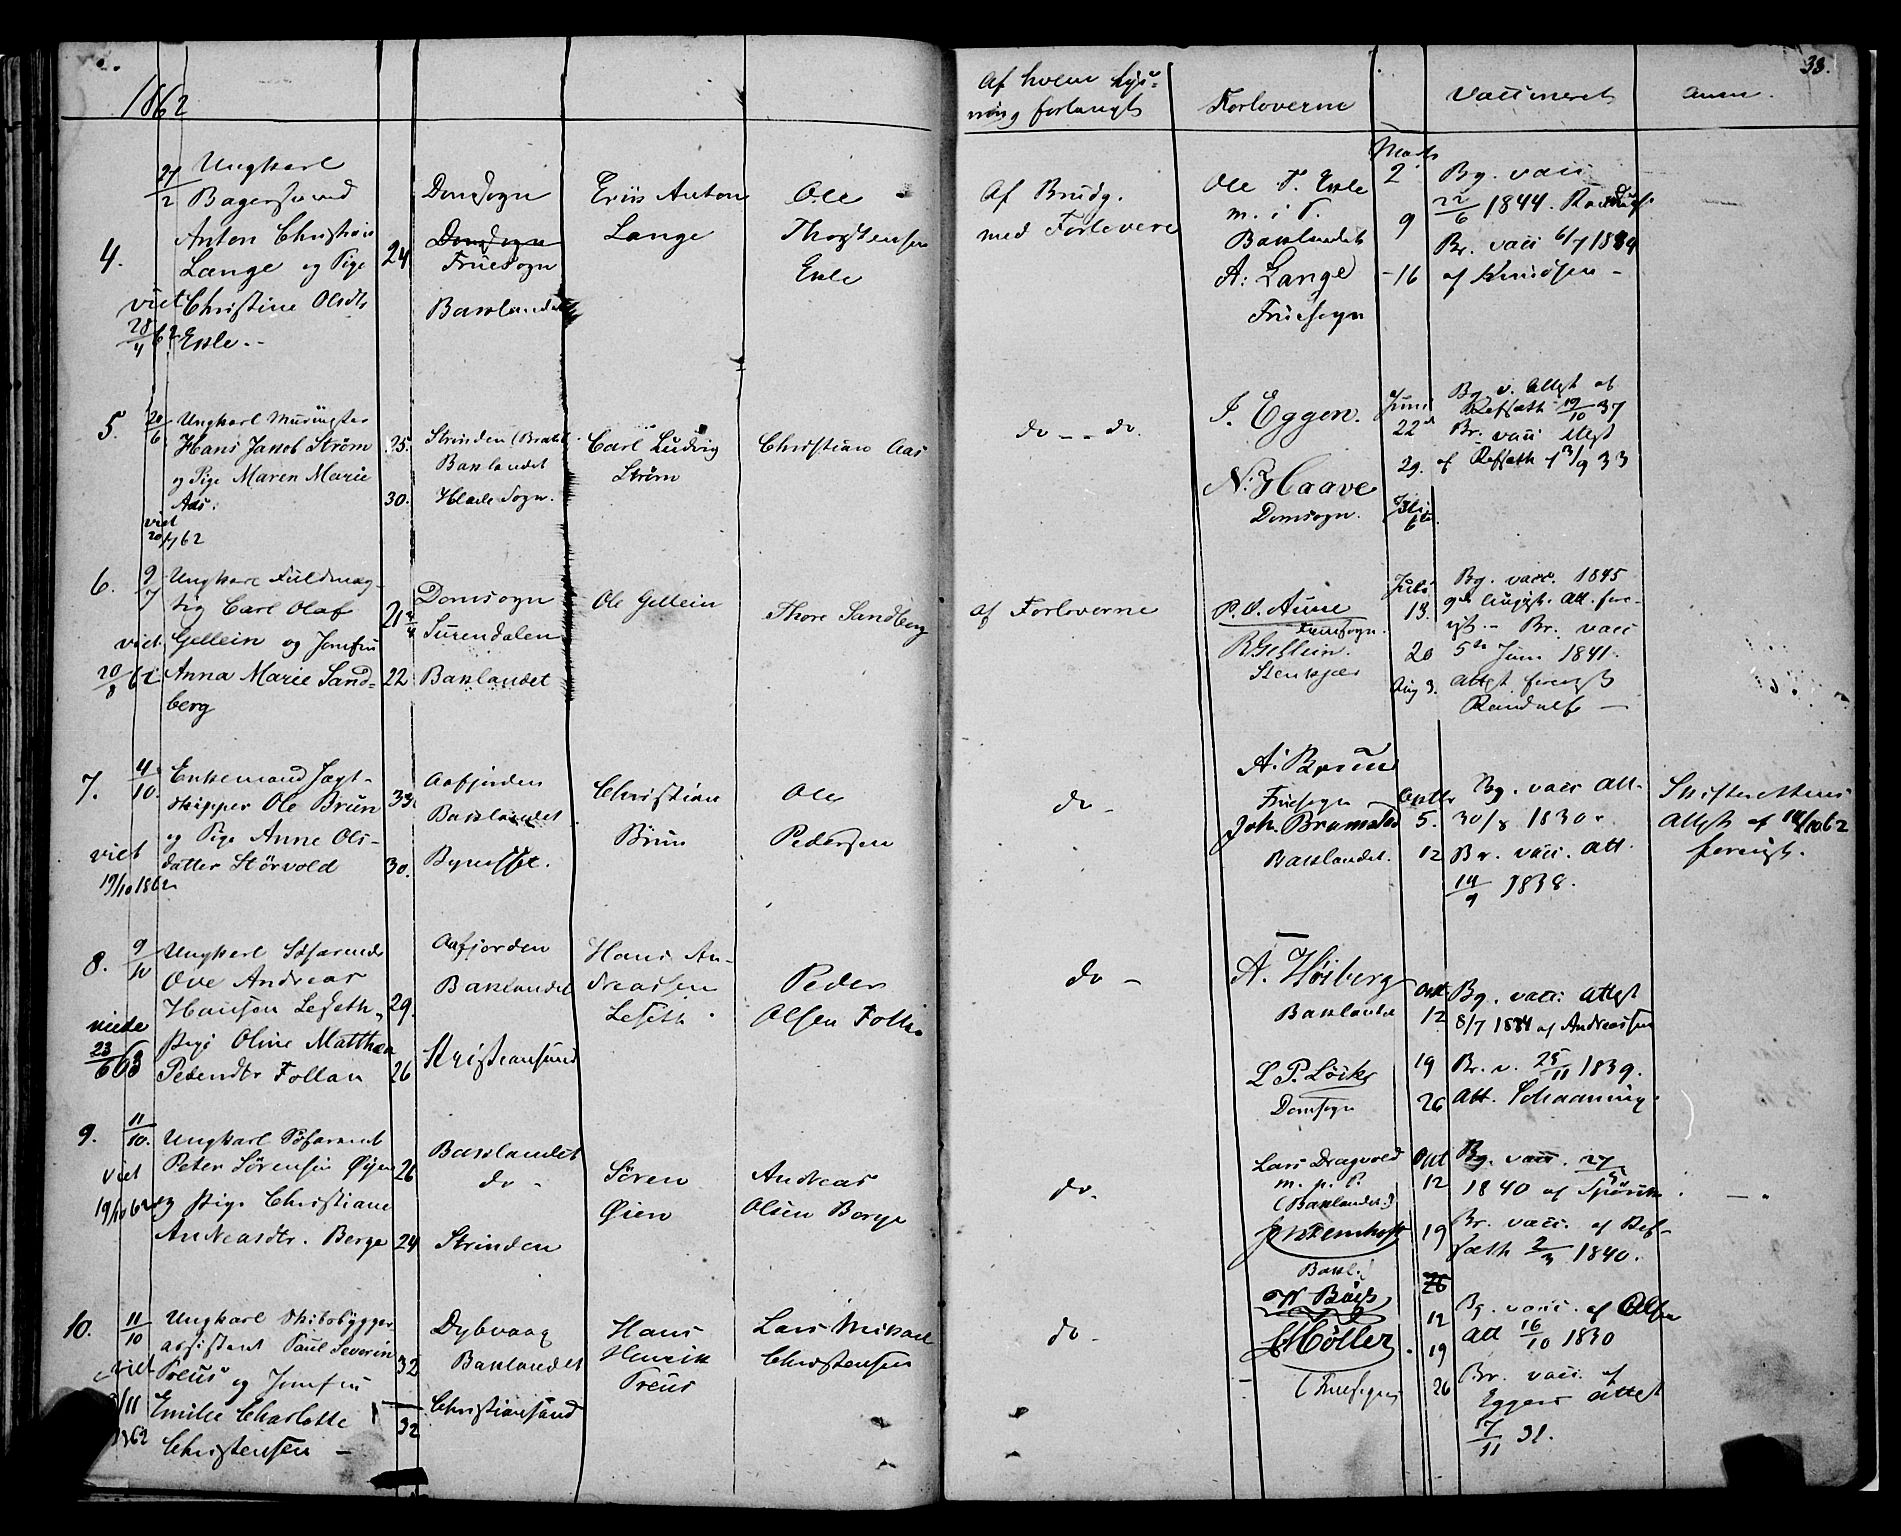 1862
Af hvem Lys-
ning forlangt
Forloverne
Vaccineret
Anm.
38.
4.
27/2
Ungkarl
Bagersvend
Anton Christian
Lange og Pige
Christine Olsdtr
Eale.
viet
28/4 62
24
Domsogn
Domsogn
Fruesogn
Baklandet
Anton
Lange
Ole
Thorstensen
Af Brudg.
med Forlovere
Ole T.
m. i P.
Baklandet
A: Lange
Fruesogn
Marts
2
9
16
Bg. vacc
22/6 1844.
Br. vacc 6/7 1839
af Knudsen
5.
20/6
Ungkarl
Hans Jacob Strøm
og Pige Maren Marie
Aas.
viet
20/7 62
25.
30.
Strinden
Baklandet
Hlade Sogn.
Carl Ludvig
Strøm
Christian Aas
do -- do.
J. Eggen.
N. Haave
Domsogn.
Juni
22
29.
Juli
6te
Bg. v. Attest af
Refsæth 19/10 37
Br. vacc Attest
af Refsæth 33
6.
9/7
Ungkarl Fuldmæg-
tig Carl Olaf
Gellein og Jomfru
Anna Marie Sand-
berg
viet
20/8 62
21
22
Domsogn
Surendalen
Baklandet
Ole Gellein
Thore Sandberg
af Forloverne
P. O. Aune
Fruesogn.
R Gellein.
Stenkjær
Juli
13.
20
Aug 3.
Bg. vacc. 1845
Br. vacc
5te Juni 1841.
Attest forevist
Randulf
7.
4/10.
Enkemand Jagt-
skipper Ole Brun
og Pige Anne Ols-
datter Størvold
viet
19/10 1862
33.
30.
Aafjorden
Baklandet
Bynesset.
Christian
Brun
Ole
Pedersen
do -
A. Brun
Fruesogn
Joh. Bramstad
Baklandet.
Octbr
5.
12
Bg. vacc Att.
30/8 1830.
Br. vacc. Att.
14/9 1838.
Skifterettens
Attest af 14/10 62
forevist.
8.
9/10
Ungkarl Søfarende
Ove Andreas
Hansen Leseth,
Pige Oline Matthea
Pedersdtr Follan
viede
23/6 63
29.
26
Aafjorden
Baklandet
Kristiansund
Hans An-
dreassen
Leseth
Peder
Olsen
do -
A. Høiberg
Baklandet
L. P.
Domsogn
Oct.
12
19
26
Bg. vacc: Attest
8/7 1834 af Andreassen
Br. v. 25/11 1839.
Att. Schaanning.
9.
11/10.
Ungkarl Søfarend
Peter Sørensen Øyen
og Pige Christiane
Andreasdtr. Berge
viet
19/10 62
26
24
Baklandet
do -
Strinden
Søren
Øien
Andreas
Olsen Berge
do.
Lars Dragvold
m. p. P.
(Baklandet)
Bakl.
Oct
12
19
26
Bg. vacc. 27/5
1840 af
Br. vacc. af Ref-
sæth 2/3 1840.
10.
11/10
Ungkarl Skibsbygger
assistent Paul Severin
Preus og Jomfru
Emilie Charlotte
Christensen -
viet
/11
62
32
32
Dybvaag
Baklandet
Christiansund
Hans
Henrik
Preus
Lars Mikael
Christensen
do -
Møller
(Fruesogn)
12
19
26
Bg. vacc. af
Att 16/10 1830
Br. vacc. af
Eggers Attest
7/11 31.